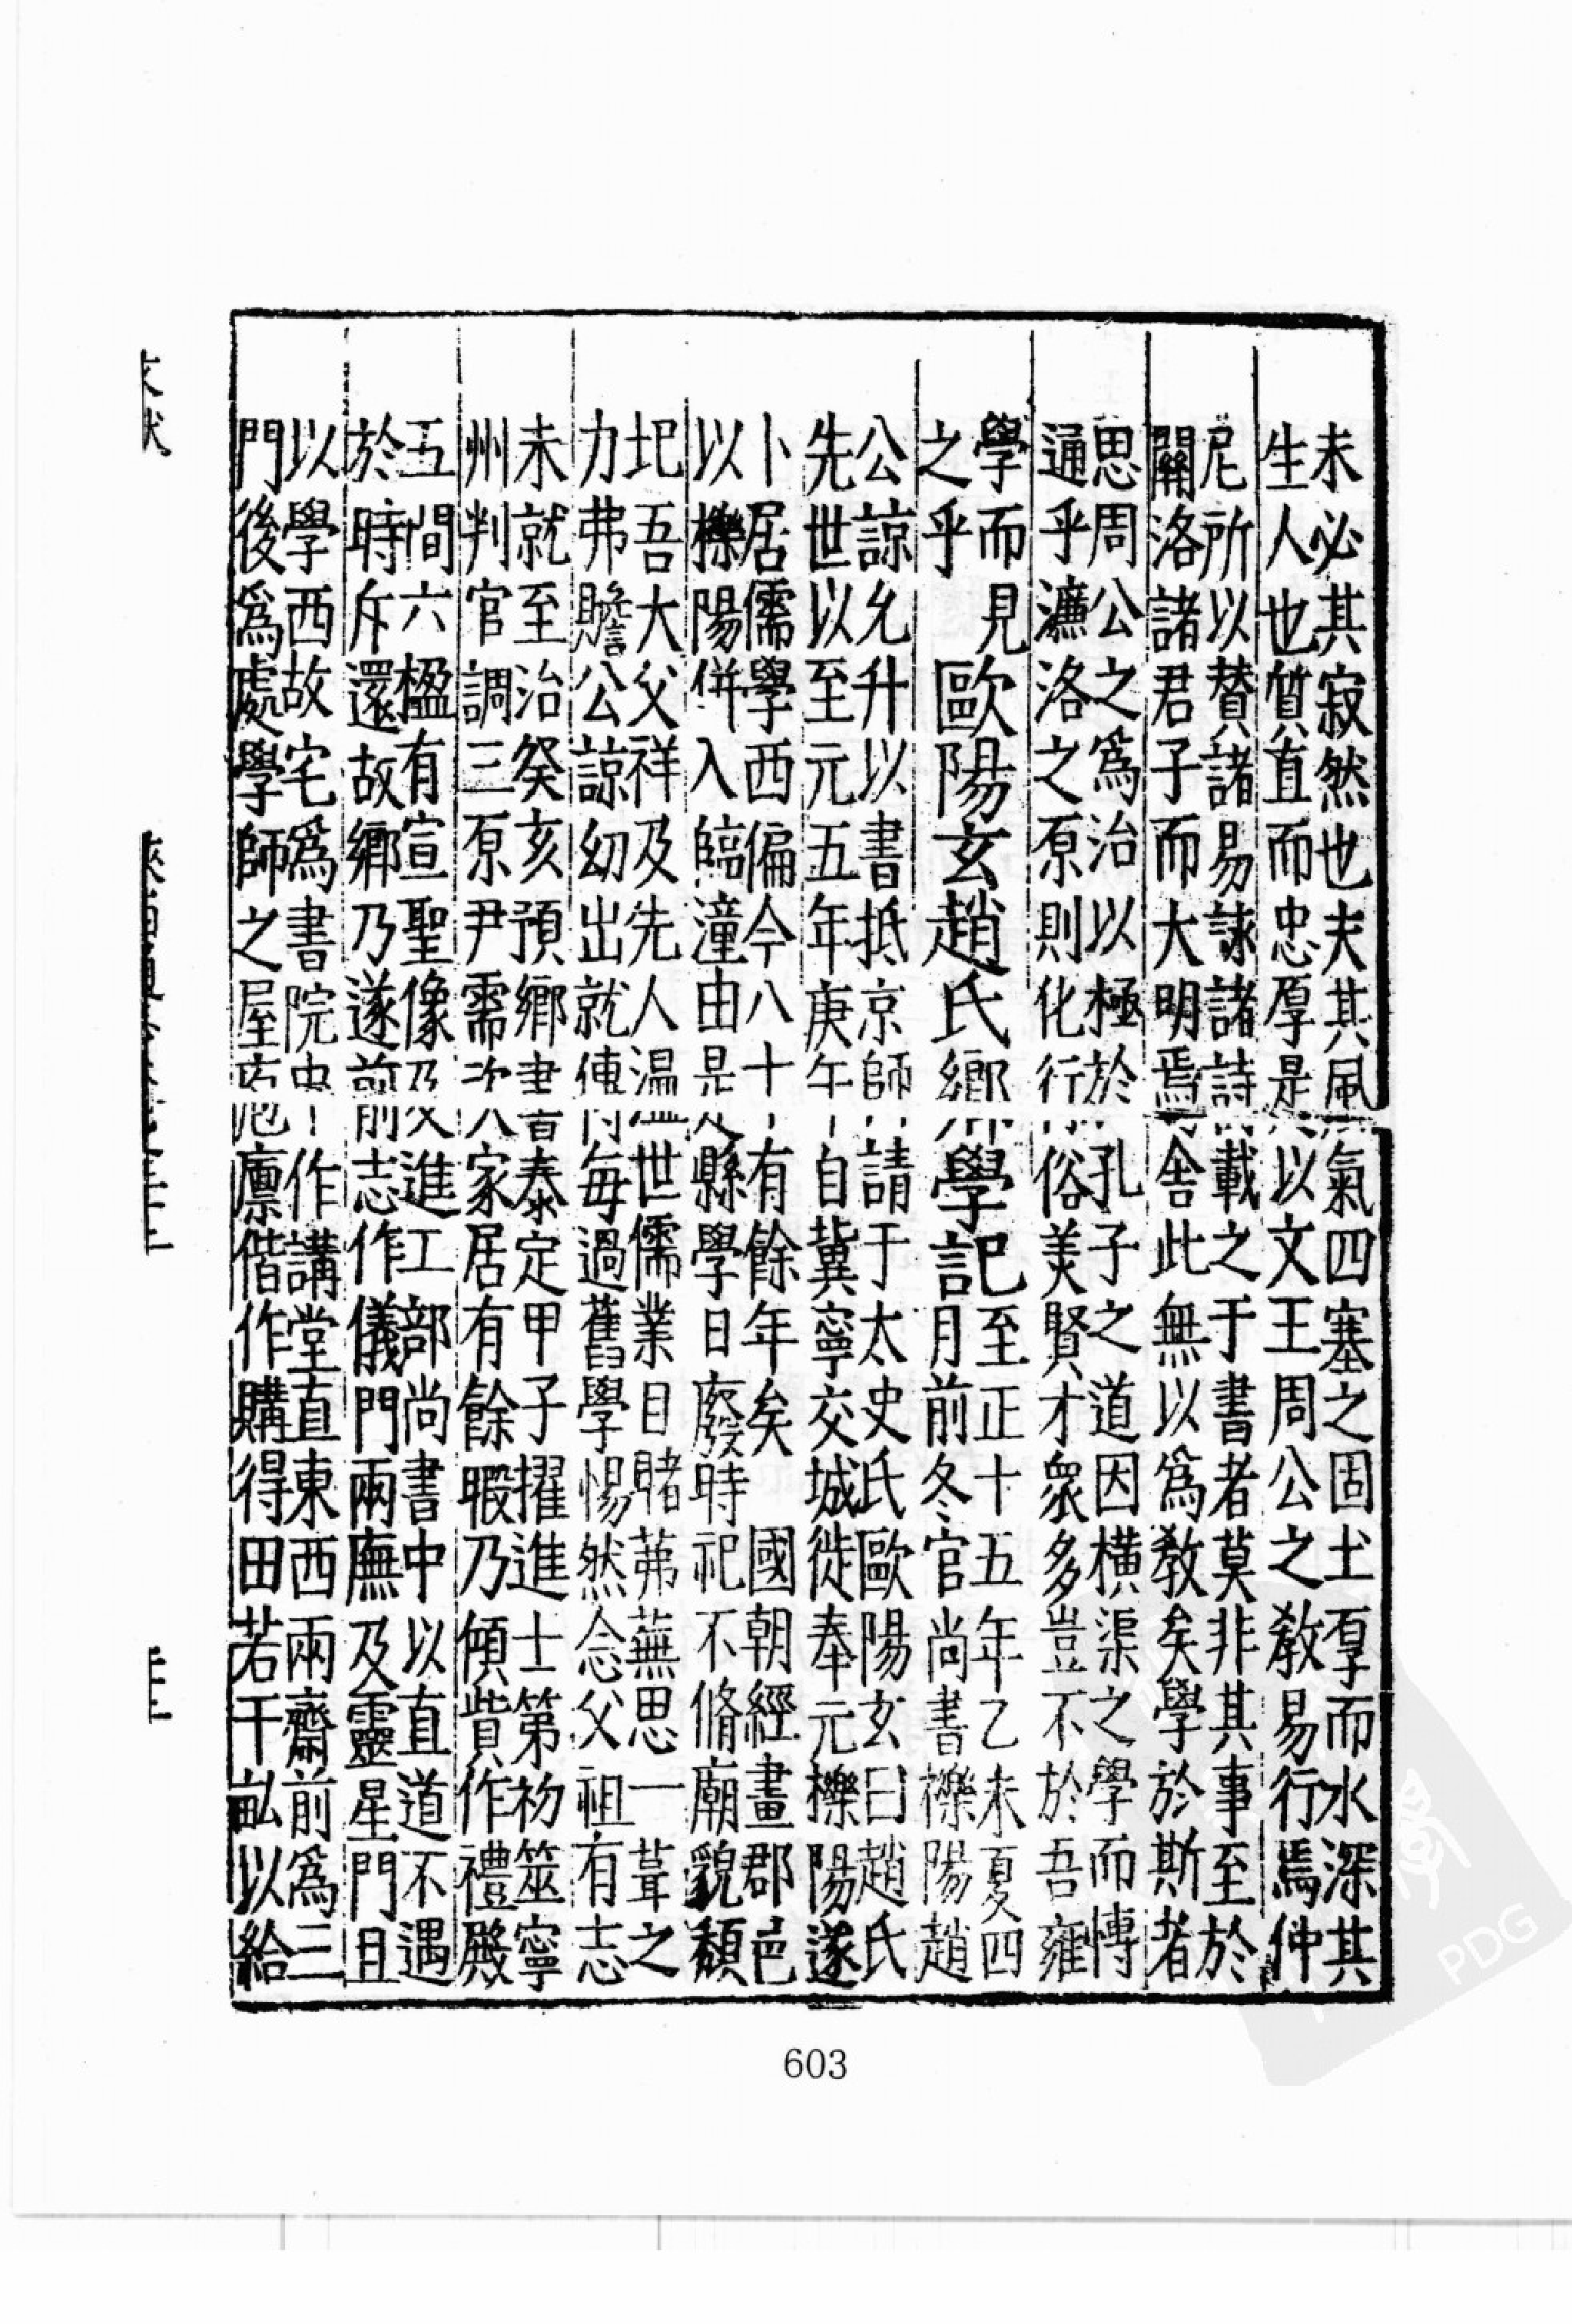 未必其寂然也夫其風氣四塞之固土厚而水深其
生人也質直而忠厚是以文王周公之教易行焉仲
尼所以贊諸易詠諸詩載之于書者莫非其事至於
關洛諸君子而大明焉舍此無以為教矣學於斯者
思周公之為治以極於孔子之道因橫渠之學而博
通乎濂洛之原則化行俗美賢才衆多豈不於吾雍
學而見
之乎
歐陽玄趙氏鄉學記
至正十五年乙未夏四
月前冬官尚書櫟陽趙
公諒允升以書抵京師請于太史氏歐陽玄曰趙氏
先世以至元五年庚午自冀寧交城徙奉元櫟陽遂
卜居儒學西偏今八十有餘年矣 國朝經畫郡邑
以櫟陽併入臨潼由是縣學日廢時祀不脩廟貌頹
圯吾大父祥及先人溫世儒業目睹茀蕪思一葺之
力弗贍公諒幼出就傅每過舊學惕然念父祖有志
未就至治癸亥預鄉書泰定甲子擢進士第初筮寧
州判官調三原尹需次家居有餘暇乃傾貲作禮殿
五間六楹有宣聖像及進工部尚書中以直道不遇
於時斥還故鄉乃遂前志作儀門兩廡及靈星門且
以學西故宅為書院中作講堂直東西兩齋前為三
門後為處學師之屋庖廪偕作購得田若干畝以給
603
PDG